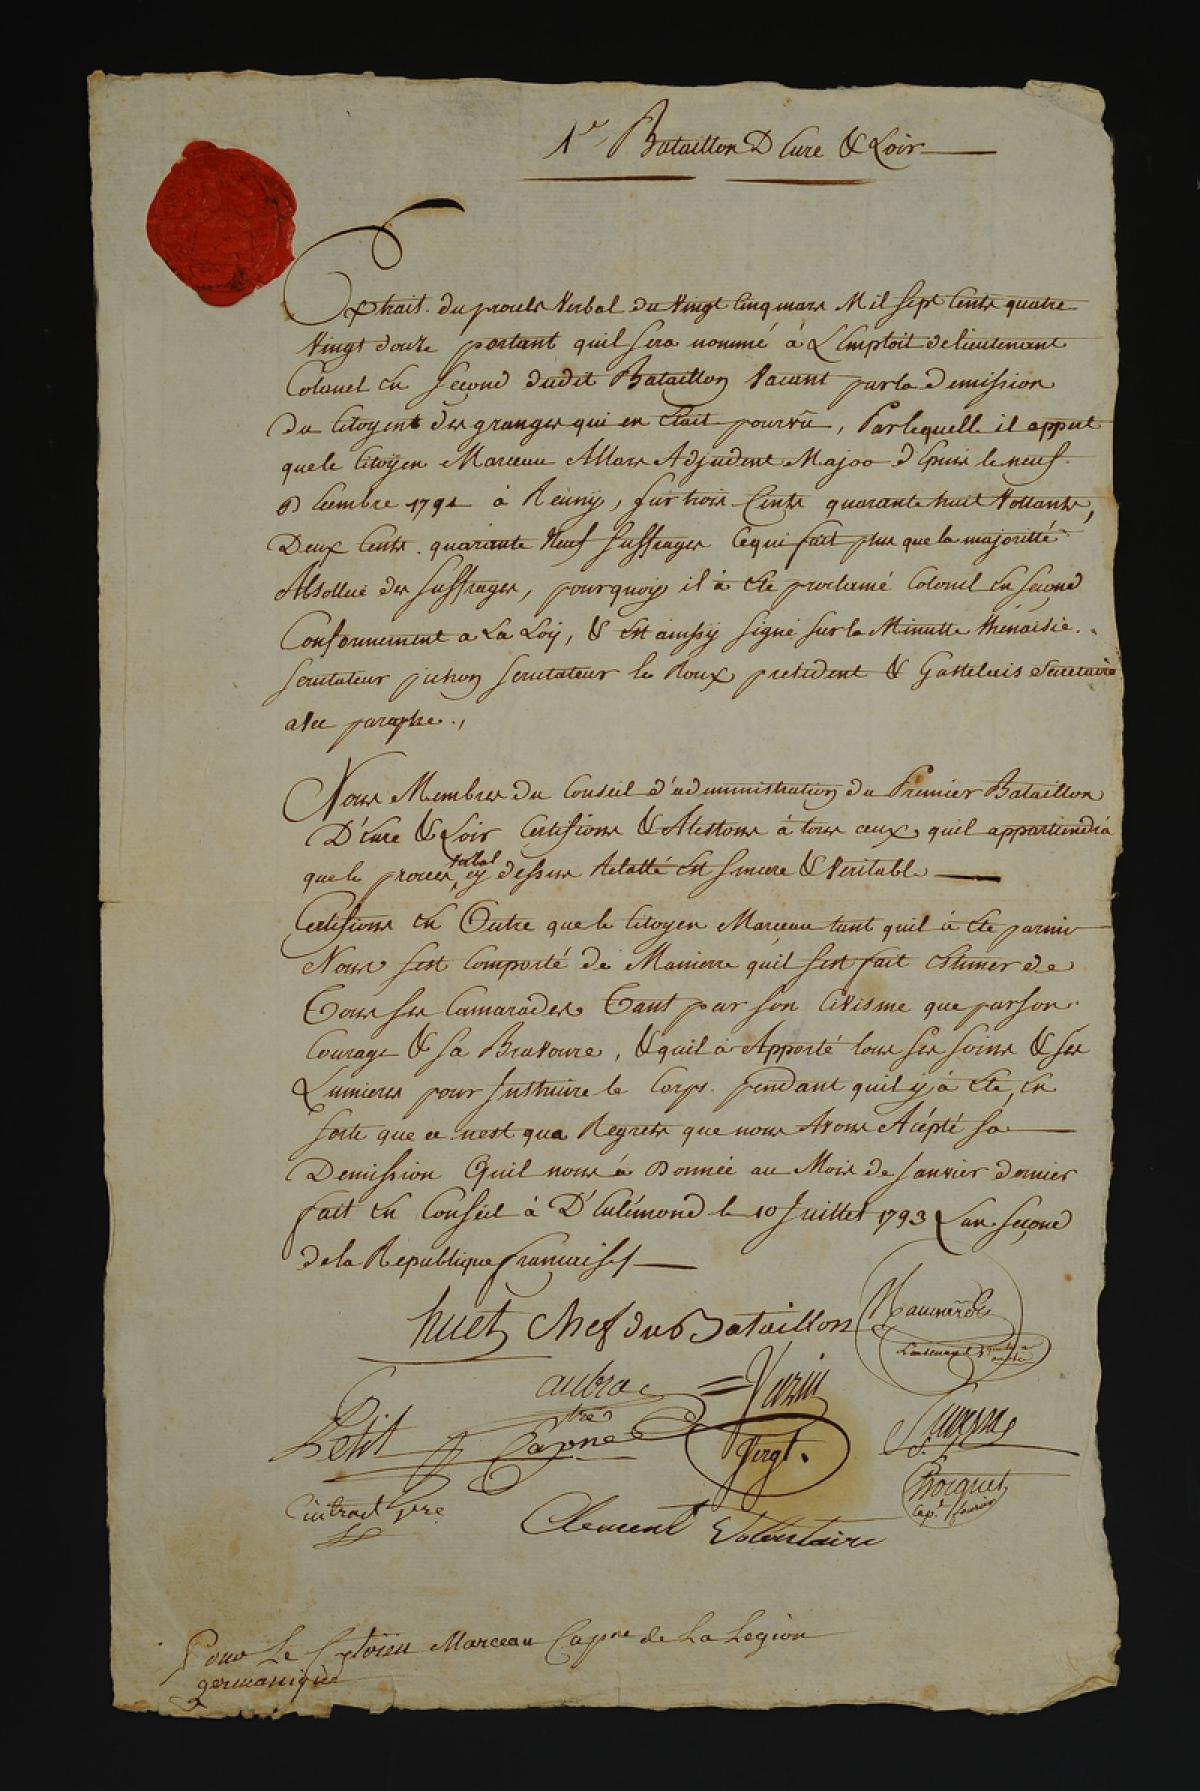 1er Bataillon D Eure & Loir
Extrait du procels Verbal du Vingt Cinq mars Mil Sept Cents quatre
Vingt douze portant quil sera nommé à L'emploit de lieutenant
Colonel en second dudit Bataillon Vacant par la demission
Du Citoyent des granges qui en Etait pourvû, Par lequelle il appert
que le Citoÿen Marceau Allors Adjudent Major d'Epuis le neuf
D Cembre 1791 à Reuny, sur trois Cents quarante huit Vottants,
Deux Cents quarante Neuf Suffrages Ce qui fait plus que la majoritté
Absollue des suffrages, pourquoy il à eté proclamé Colonel en second
Conformement a La Loÿ, & Est ainssÿ signé sur la Minutte thénaisie
scrutateur pichon scrutateur le Roux president & Gastelais Secretaire
avec paraphe.,
Nous Membres du Conseil d'administration du Premier Bataillon
D'Eure & Loir Certifions & Atestons à tous ceux quil appartiendra
verbal
que le proces cy dessus Relatté est sincere & Veritable
Certifions en Outre que le Citoyen Marceau tant quil à eté parmi
Nous sest Comporté de Manierre quil sest fait Estimer de
Tous ses Camarades Tant par son Civisme que par son
Courage & sa Bravoure, & quil à Apporté tous ses soins & ses
Lumieres pour Instruire le Corps pendant quil y à eté, en
sorte que ce nest qua Regrets que nous Avons Acépté sa
Demission Quil nous à Donnée au Mois de Janvier dernier
fait en Conseil à D' le 10 Juillet 1793 Lan second
de la Republique francaise
huet Chef du Bataillon
Lieutenant
aubra
Petit Capne
Varin
Sergt.
Bocquet
Cap.
Clement Volontaire
Pour Le Citoien Marceau Capne de La Legion
germanique